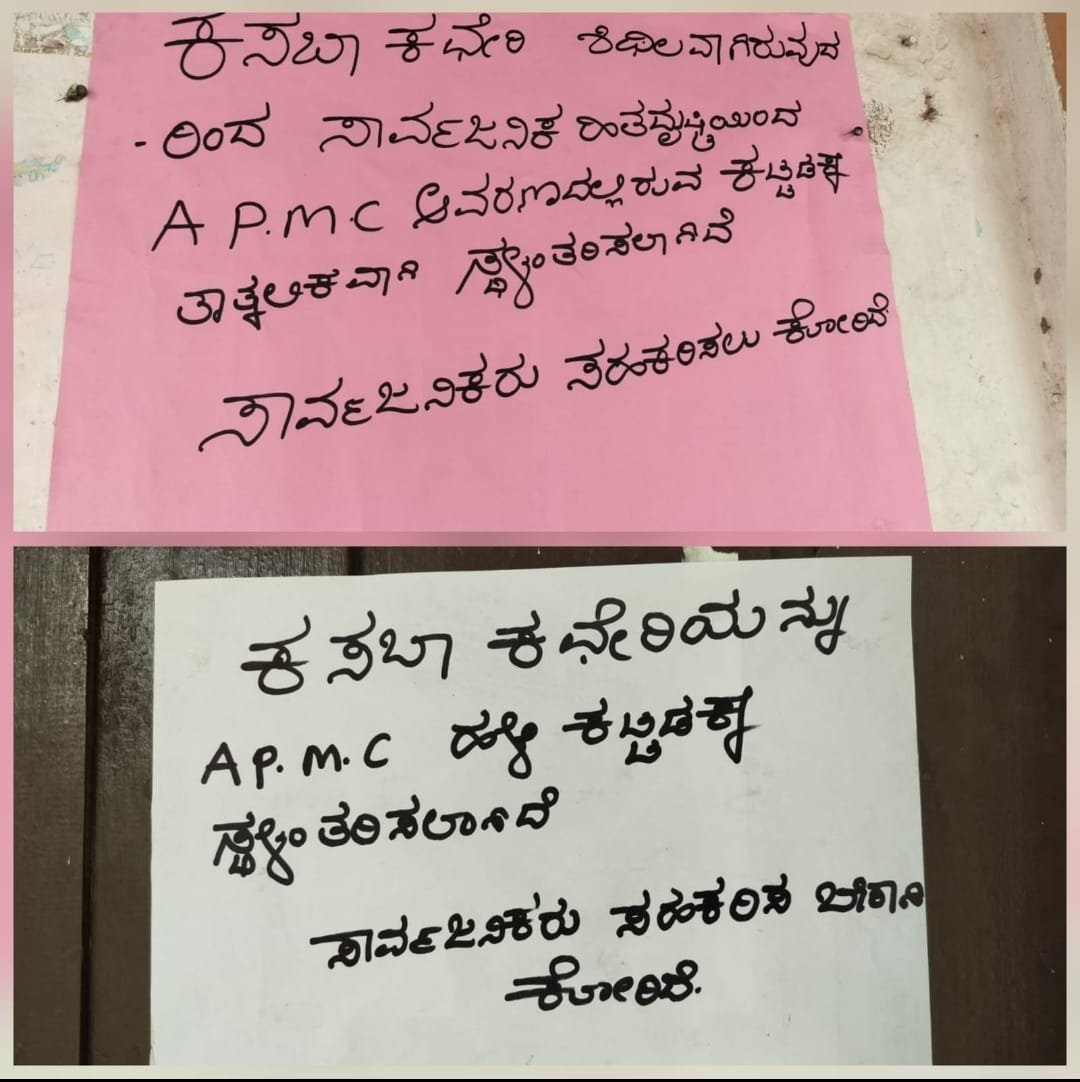 ಕಸಬಾ ಕಛೇರಿ ಶಿಥಿಲವಾಗಿರುವುದ
-ರಿಂದ ಸಾರ್ವಜನಿಕ ಹಿತದೃಷ್ಟಿಯಿಂದ
A P.M.C ಆವರಣದಲ್ಲಿರುವ ಕಟ್ಟಡಕ್ಕೆ
ತಾತ್ಕಲಿಕವಾಗಿ ಸ್ಥಳಾಂತರಿಸಲಾಗಿದೆ
ಸಾರ್ವಜನಿಕರು ಸಹಕರಿಸಲು ಕೋರಿದೆ
ಕಸಬಾ ಕಛೇರಿಯನ್ನು
A P. M. C ಹಳೇ ಕಟ್ಟಡಕ್ಕೆ
ಸ್ಥಳಾಂತರಿಸಲಾಗಿದೆ
ಸಾರ್ವಜನಿಕರು ಸಹಕರಿಸ ಬೇಕಾಗಿ
ಕೋರಿದೆ.